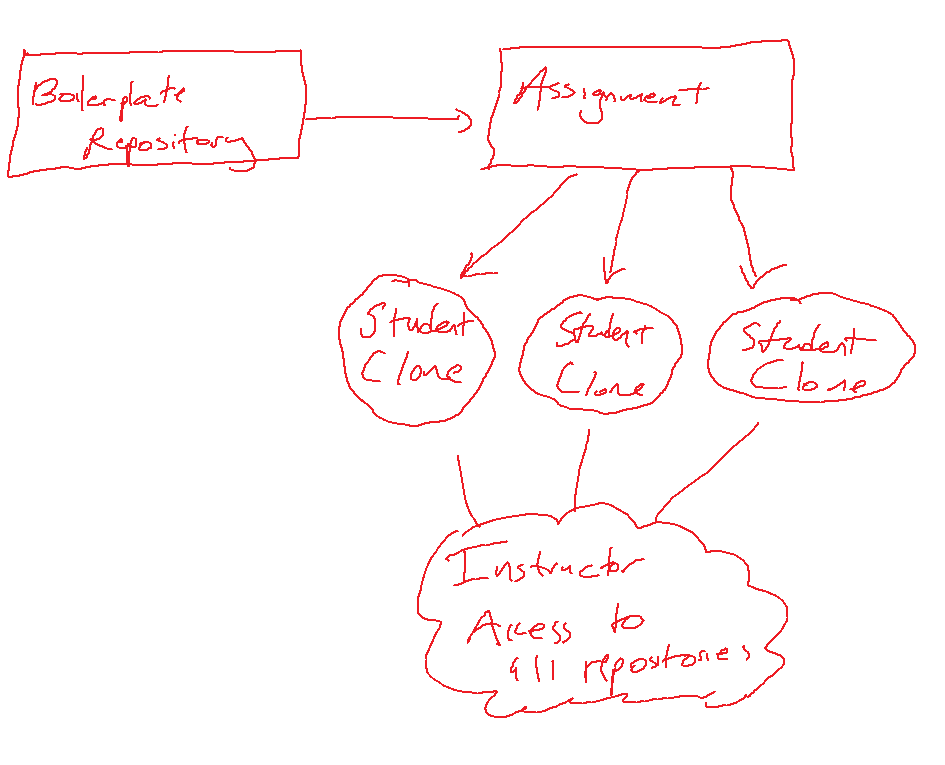 Boilerplate
Repository
Assignment
Student
Clone
Student
Clone
Student
Clone
Instructor
Access to
all repostories